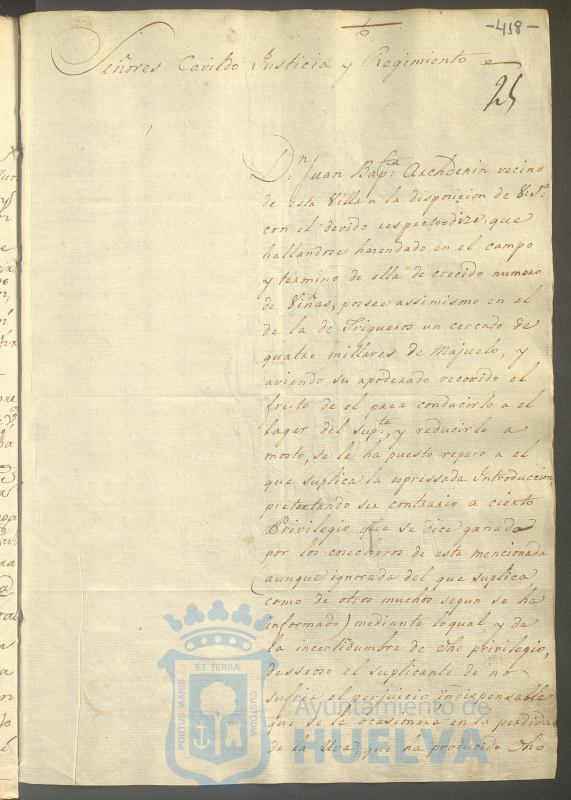 -418-
Señores Cavildo Justicia y Regimiento
25
Dn. Juan Bapta. Archderin vecino
de esta Villa a la disposicion de V.S.
con el devido respecto=dize, que
hallandose harendado en el campo
y termino de ella de crecido numero
de Viñas, possee assimismo en el
de la de Trigueros un cercado de
quatro millares de Majuelo, y
aviendo su apoderado recoxido el
fruto de el para conducirlo a el
lagar del supte., y reducirlo a
mosto, se le ha puesto reparo a el
que suplica la expressada Introduccion,
pretextando ser contrario a cierto
Privilegio que se dice ganado
por los cosecheros de esta mencionada
(aunque ignorada del que suplica,
como de otros muchos segun se ha
informado) mediante loqual, y de
la incertidumbre de dho privilegio,
desseoso el suplicante de no
sufrir el perjuicio indispensable
que se le ocasionara en la perdida
de la Uva, que ha producido dho
PORTUS MARIS ET TERRÆ CUSTODIA
Ayuntamiento de
HUELVA